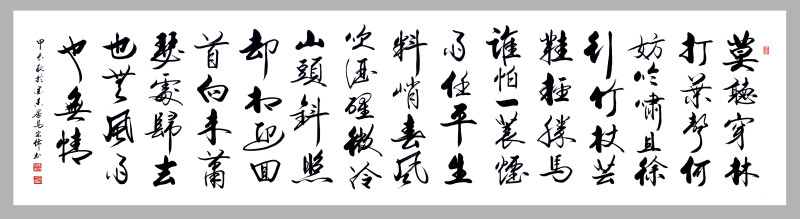 莫聽穿林
打葉聲何
妨吟嘯且徐
行竹杖芒
鞋輕勝馬
誰怕一蓑煙
雨任平生
料峭春風
吹酒醒微冷
山頭斜照
却相迎回
首向来蕭
瑟處歸去
也無風雨
也無晴
甲午秋於